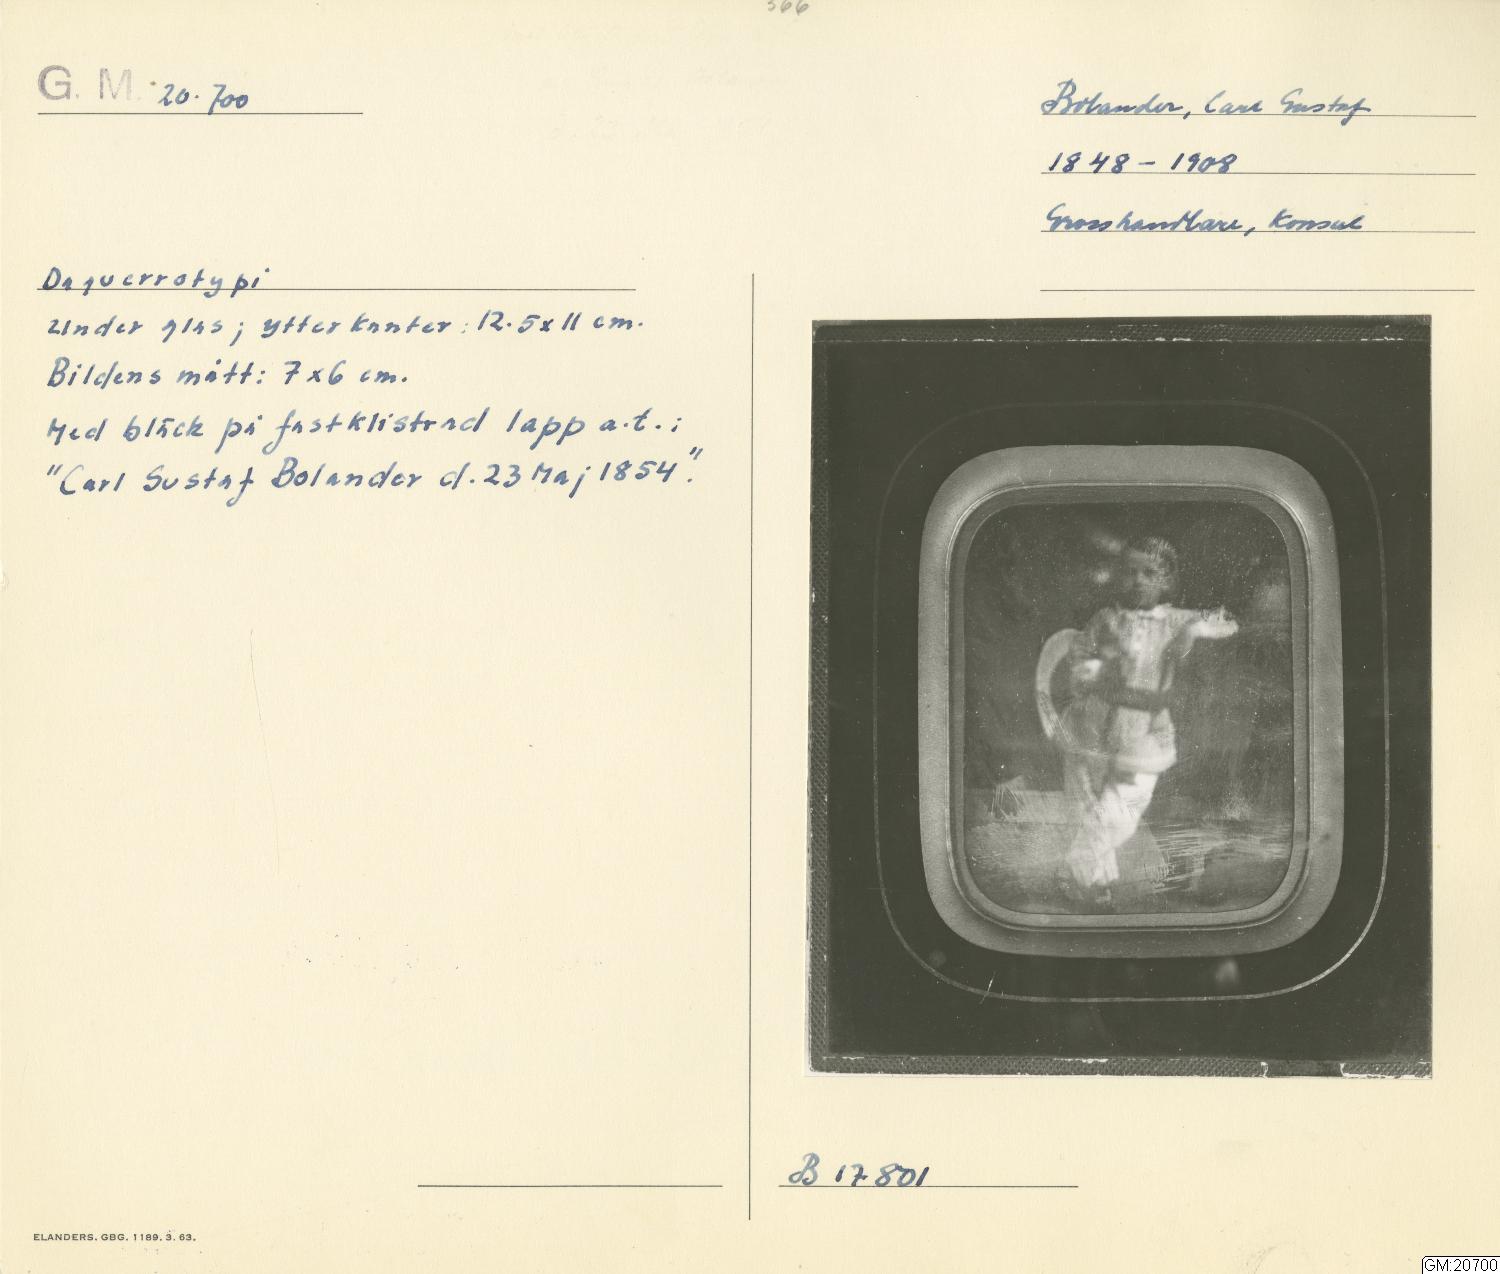 366
G. M. 20.700
Bolander, Carl Gustaf
1848-1908
Grosshandlare, Konsul
Daguerrotypi
under glas; ytterkanter: 12.5x11 cm.
Bildens mått: 7x6 cm.
Med bläck på fastklistrad lapp a.t.:
"Carl Gustaf Bolander d. 23 Maj 1854".
B 17801
ELANDERS. GBG. 1189. 3. 63.
GM:20700